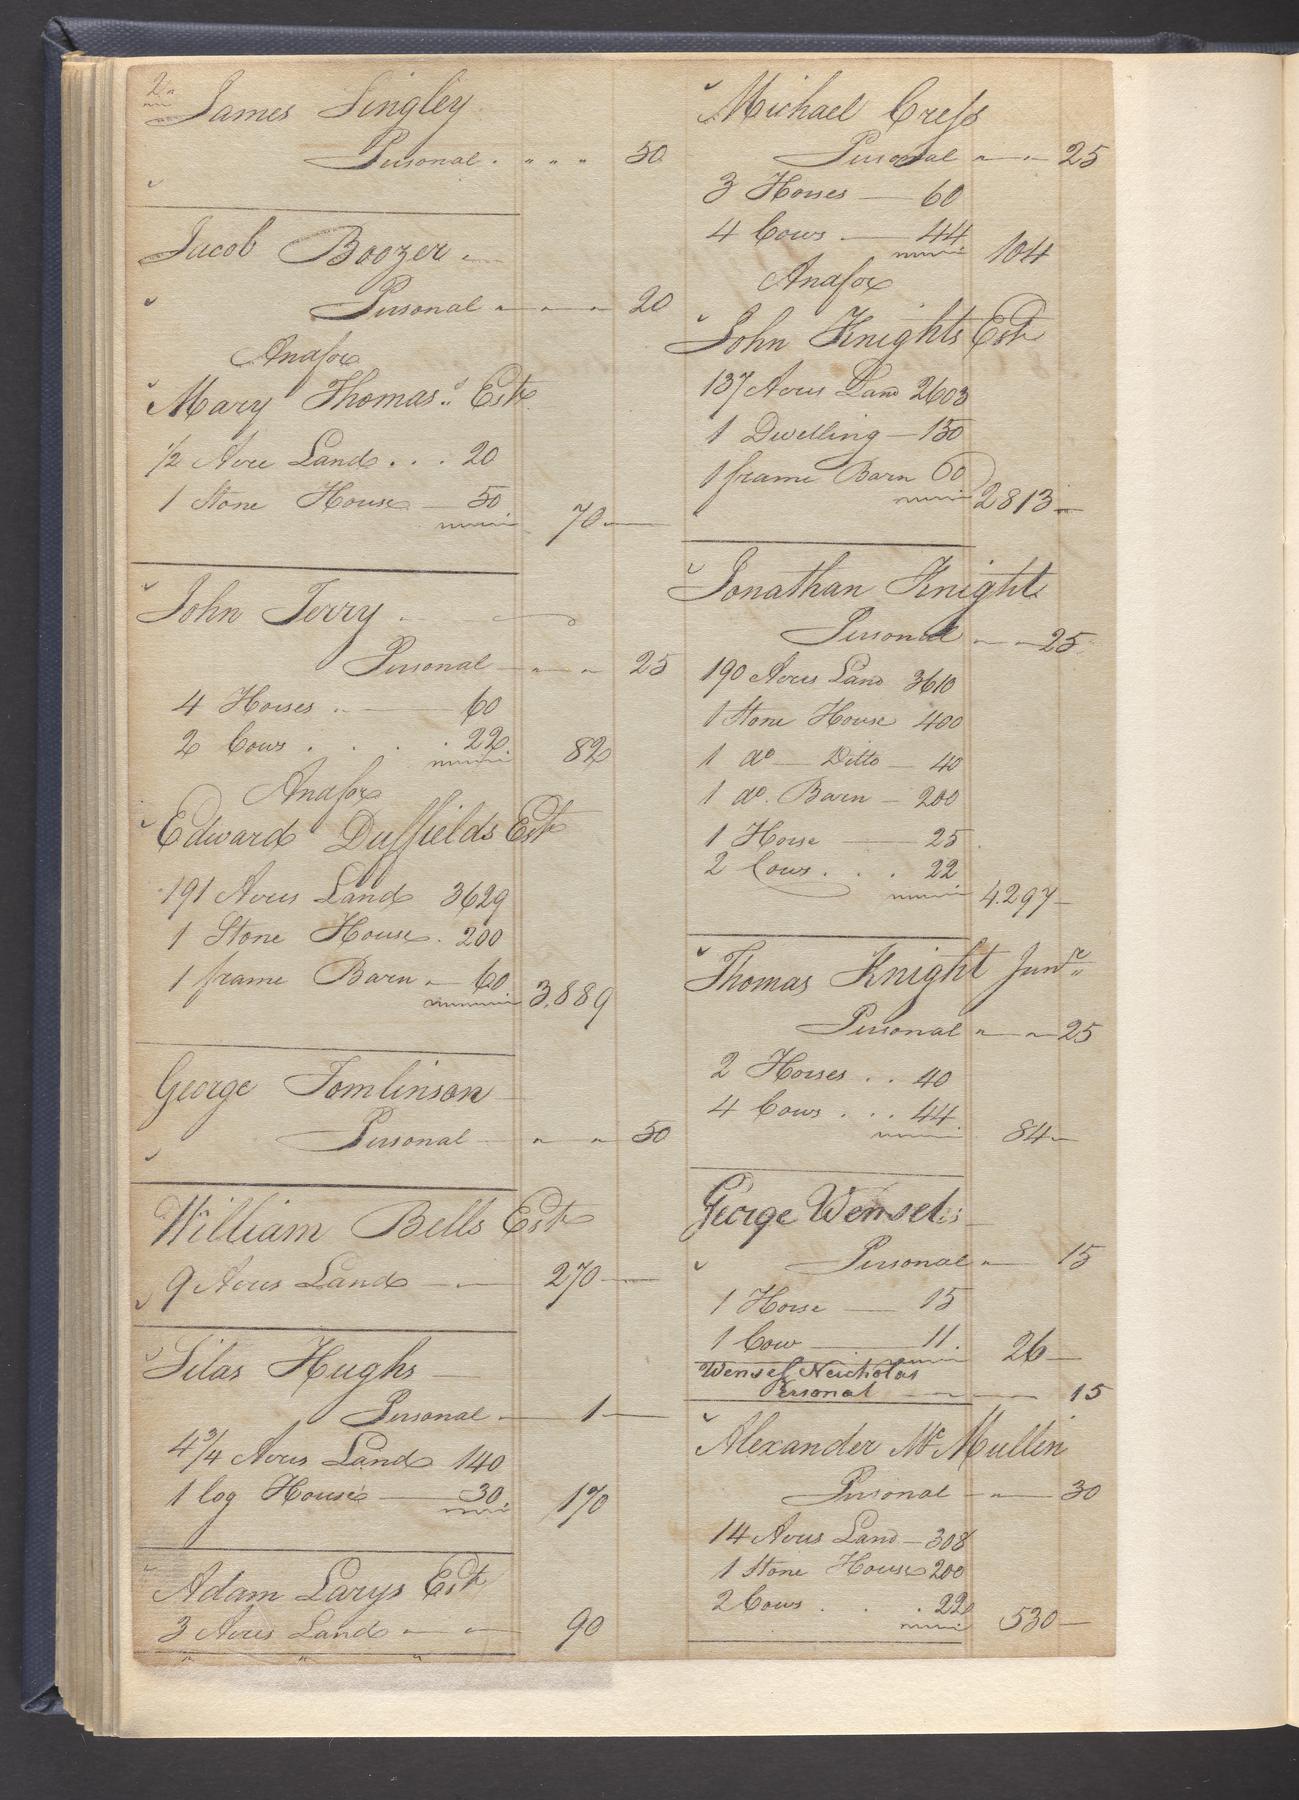 2
James Singley
Personal . " " " 50
Jacob Boozer
Personal " " " 20
And for
Mary Thomas's Est
1/2 Acre Land . . . 20
1 Stone House — 50
70
John Terry
Personal — " " 25
4 Horses — 60
2 Cows . . . . 22
82
And for
Edward Duffields Est
191 Acres Land 3629
1 Stone House . 200
1 frame Barn " 60
3,889
George Tomlinson
Personal — " " 50
William Bells Est
9 Acres Land — 270
Silas Hughs
Personal — 1
4 3/4 Acres Land 140
1 log House — 30
170
Adam Larys Est
3 Acres Land " " 90
Michael Cress
Personal " " 25
3 Horses — 60
4 Cows — 44
104
And for
John Knights Est
137 Acres Land 2603
1 Dwelling — 150
1 frame Barn 60
2813
Jonathan Knight
Personal " " 25
190 Acres Land 3610
1 Stone House 400
1 do — Ditto — 40
1 do. Barn — 200
1 Horse — 25
2 Cows . . . 22
4.297
Thomas Knight Junr
Personal " " 25
2 Horses . . 40
4 Cows . . . 44
84
George Wensel
Personal " 15
1 Horse — 15
1 Cow — 11.
26
Wensel Neicholas
Personal — 15
Alexander Mc Mullin
Personal — " 30
14 Acres Land — 308
1 Stone House 200
2 Cows . . . 22
530